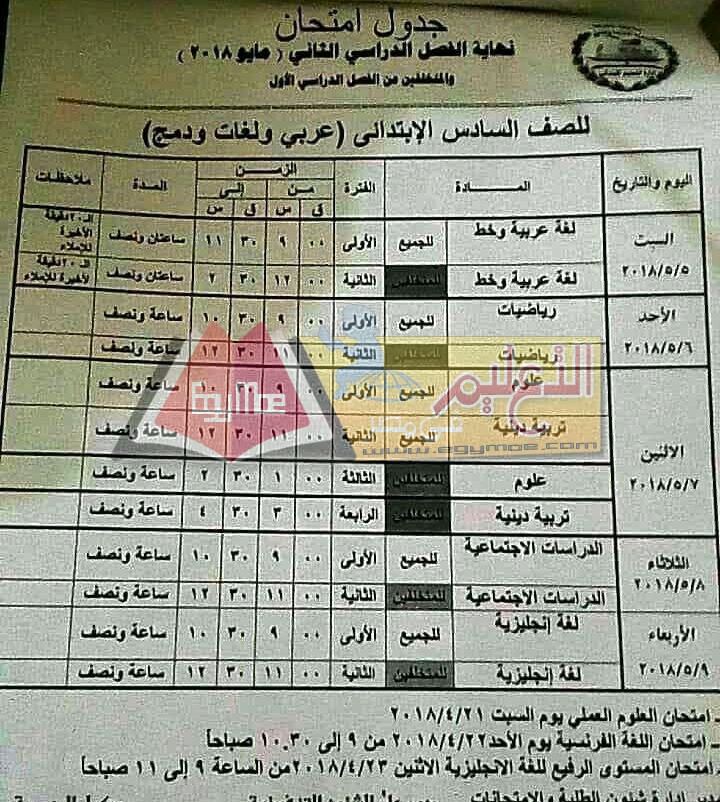 جدول امتحان
نهاية الفصل الدراسي الثاني ( مايو ٢٠١٨ )
والمتخلفين من الفصل الدراسي الأول
للصف السادس الإبتدائى (عربي ولغات ودمج)
اليوم والتاريخ المـــادة الفترة الزمـــن المدة ملاحظات
مـــن إلـــى
ق س ق س
السبت ٢٠١٨/٥/٥ لغة عربية وخط للجميع الأولى ٠٠ ٩ ٣٠ ١١ ساعتان ونصف الـ٢٠ دقيقة الأخيرة للإملاء
لغة عربية وخط للمتخلفين الثانية ٠٠ ١٢ ٣٠ ٢ ساعتان ونصف الـ٢٠ دقيقة لأخيرة للإملاء
الأحد ٢٠١٨/٥/٦ رياضيات للجميع الأولى ٠٠ ٩ ٣٠ ١٠ ساعة ونصف
رياضيات للمتخلفين الثانية ٠٠ ١١ ٣٠ ١٢ ساعة ونصف
الاثنين ٢٠١٨/٥/٧ علوم للجميع الأولى ٠٠ ٩ ٣٠ ١٠ ساعة ونصف
تربية دينية للجميع الثانية ٠٠ ١١ ٣٠ ١٢ ساعة ونصف
علوم للمتخلفين الثالثة ٠٠ ١ ٣٠ ٢ ساعة ونصف
تربية دينية للمتخلفين الرابعة ٠٠ ٣ ٣٠ ٤ ساعة ونصف
الثلاثاء ٢٠١٨/٥/٨ الدراسات الاجتماعية للجميع الأولى ٠٠ ٩ ٣٠ ١٠ ساعة ونصف
الدراسات الاجتماعية للمتخلفين الثانية ٠٠ ١١ ٣٠ ١٢ ساعة ونصف
الأربعاء ٢٠١٨/٥/٩ لغة إنجليزية للجميع الأولى ٠٠ ٩ ٣٠ ١٠ ساعة ونصف
لغة إنجليزية للمتخلفين الثانية ٠٠ ١١ ٣٠ ١٢ ساعة ونصف
Egymoe
التعليم
فى مصر
www.egymoe.com
ـ امتحان العلوم العملي يوم السبت ٢٠١٨/٤/٢١
ـ امتحان اللغة الفرنسية يوم الأحد ٢٠١٨/٤/٢٢ من ٩ إلى ١٠.٣٠ صباحاً
ـ امتحان المستوى الرفيع للغة الانجليزية الاثنين ٢٠١٨/٤/٢٣ من الساعة ٩ إلى ١١ صباحاً
مدير إدارة شئون الطلبة والامتحانات